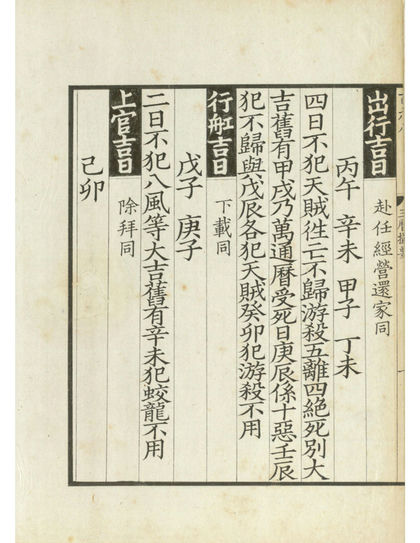 出行吉日 赴任經營還家同
丙午 辛未 甲子 丁未
四日不犯天賊徃亡不歸游殺五離四絶死別大
吉舊有甲戌乃萬通曆受死日庚辰係十惡壬辰
犯不歸與戊辰各犯天賊癸卯犯游殺不用
行舡吉日 下載同
戊子 庚子
二日不犯八風等大吉舊有辛未犯蛟龍不用
上官吉日 除拜同
己卯